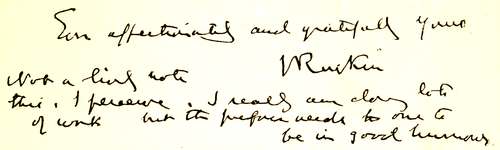 Ever affectionately and gratefully yours
JRuskin
Not a lively note
this, I perceive. I really am doing lots
of work but the preface needs to one to
be in good humour